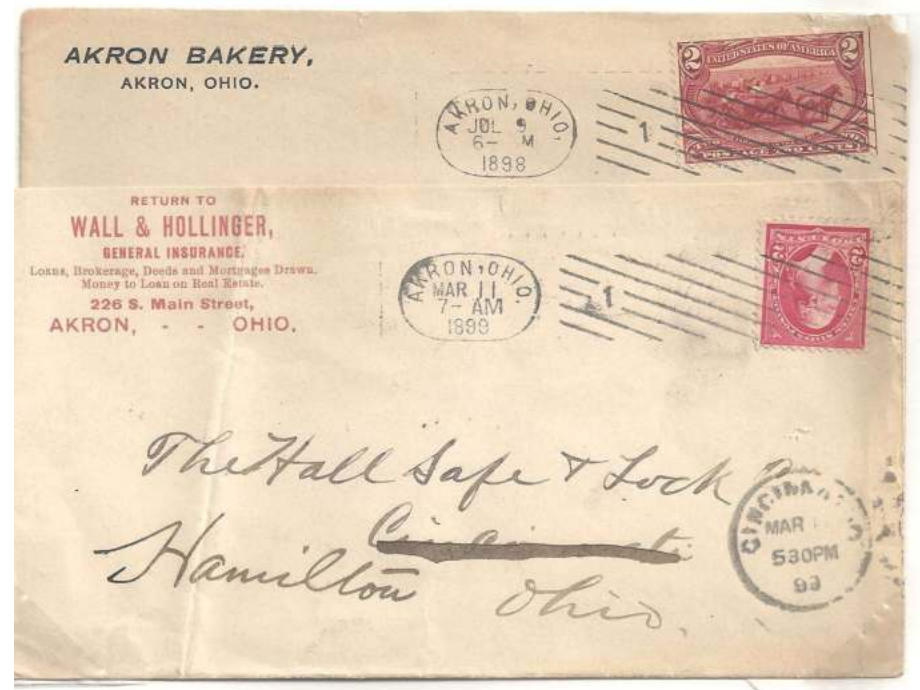 AKRON BAKERY,
AKRON, OHIO.
AKRON, OHIO,
JUL 9
6- M
1898
1
2 UNITED STATES OF AMERICA 2
POSTAGE TWO CENTS
RETURN TO
WALL & HOLLINGER,
GENERAL INSURANCE.
Loans, Brokerage, Deeds and Mortgages Drawn.
Money to Loan on Real Estate.
226 S. Main Street,
AKRON, - - OHIO.
AKRON, OHIO.
MAR 11
7- AM
1899
1
The Hall Safe & Lock
Cincinnati
Hamilton Ohio.
MAR
530PM
99